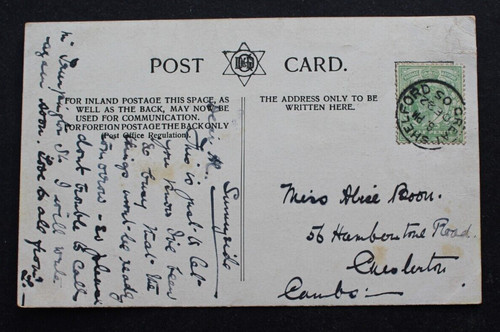 POST CARD.
FOR INLAND POSTAGE THIS SPACE, AS
WELL AS THE BACK, MAY NOW BE
USED FOR COMMUNICATION.
FOR FOREIGN POSTAGE THE BACK ONLY
(Post Office Regulation).
THE ADDRESS ONLY TO BE
WRITTEN HERE.
SHELFORD SO
Miss Alice Boon.
56 Road.
Chesterton
Cambs.
Sunnyside
Dear A.
This is just to let
you know I've been
so busy that the
things won't be ready
tomorrow - so please
don't trouble to call
St. I will write
again soon. Love to all from